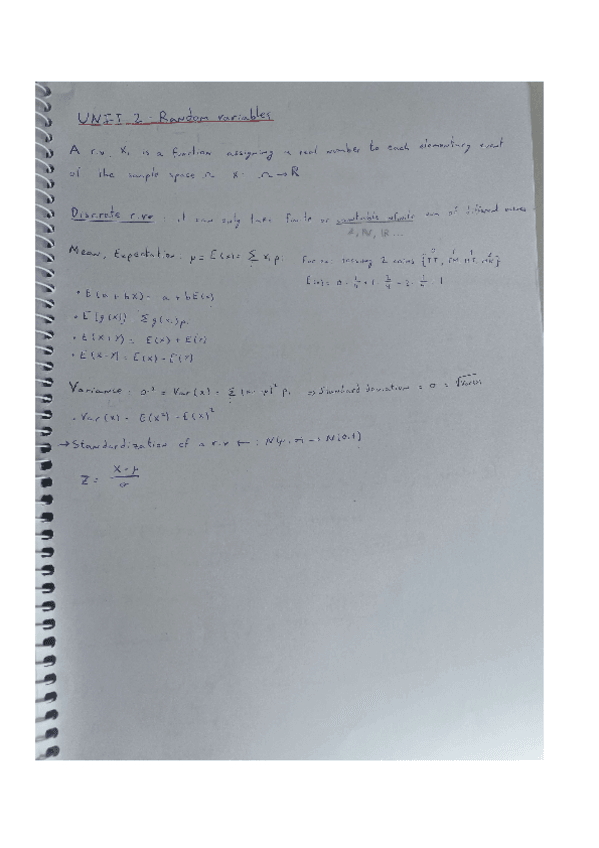 UNIT 2: Random variables
A r.v. X, is a function assigning a real number to each elementary event
of the sample space Ω X: Ω→R
Discrete r.v: it can only take finite or countable infinite num of different values
Z, N, R...
Mean, Expectation: μ = E(X) = Σ xᵢ pᵢ For ex: tossing 2 coins {TT, TH, HT, HH}
E(X) = 0 · 1/4 + 1 · 2/4 + 2 · 1/4 = 1
• E(a + bX) = a + bE(X)
• E(g(X)) = Σ g(xᵢ) pᵢ
• E(X + Y) = E(X) + E(Y)
• E(X - Y) = E(X) - E(Y)
Variance: σ² = Var(X) = Σ (xᵢ - μ)² pᵢ => Standard deviation = σ = √Var(X)
• Var(X) = E(X²) - E(X)²
→ Standardization of a r.v : N(μ, σ) → N(0,1)
Z = (X - μ)/σ